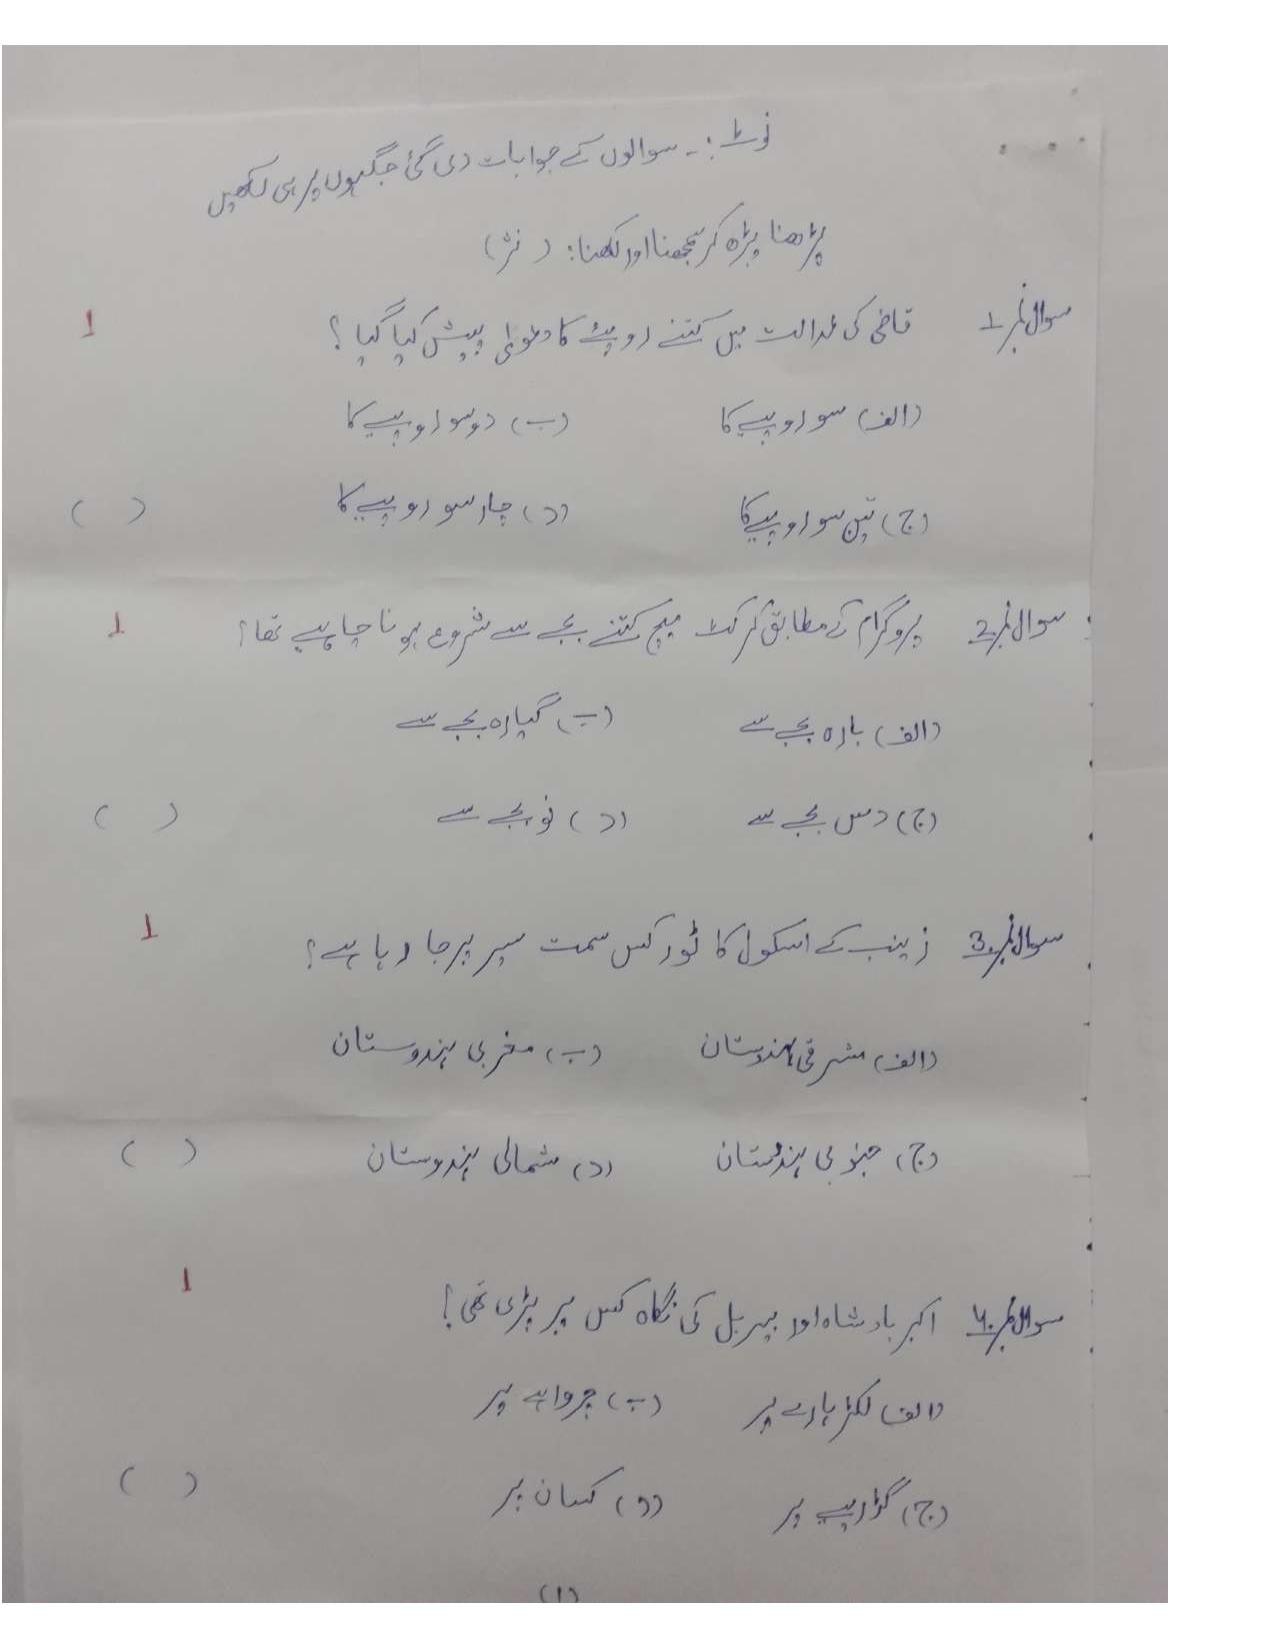 نوٹ:۔ سوالوں کے جوابات دی گئی جگہوں پر ہی لکھیں
پڑھنا پڑھ کر سمجھنا اور لکھنا: (نثر)
سوال نمبر 1 قاضی کی عدالت میں کتنے روپئے کا دعویٰ پیش کیا گیا؟ 1
(الف) سو روپیے کا (ب) دو سو روپیے کا
(ج) تین سو روپیے کا (د) چار سو روپیے کا ( )
سوال نمبر 2 پروگرام کے مطابق کرکٹ میچ کتنے بجے سے شروع ہونا چاہیے تھا؟ 1
(الف) بارہ بجے سے (ب) گیارہ بجے سے
(ج) دس بجے سے (د) نو بجے سے ( )
سوال نمبر 3 زینب کے اسکول کا ٹور کس سمت سیر پر جا رہا ہے؟ 1
(الف) مشرقی ہندوستان (ب) مغربی ہندوستان
(ج) جنوبی ہندوستان (د) شمالی ہندوستان ( )
سوال نمبر 4 اکبر بادشاہ اور بیربل کی نگاہ کس پر پڑی تھی؟ 1
(الف) لکڑہارے پر (ب) چرواہے پر
(ج) گڈریے پر (د) کسان پر ( )
(1)